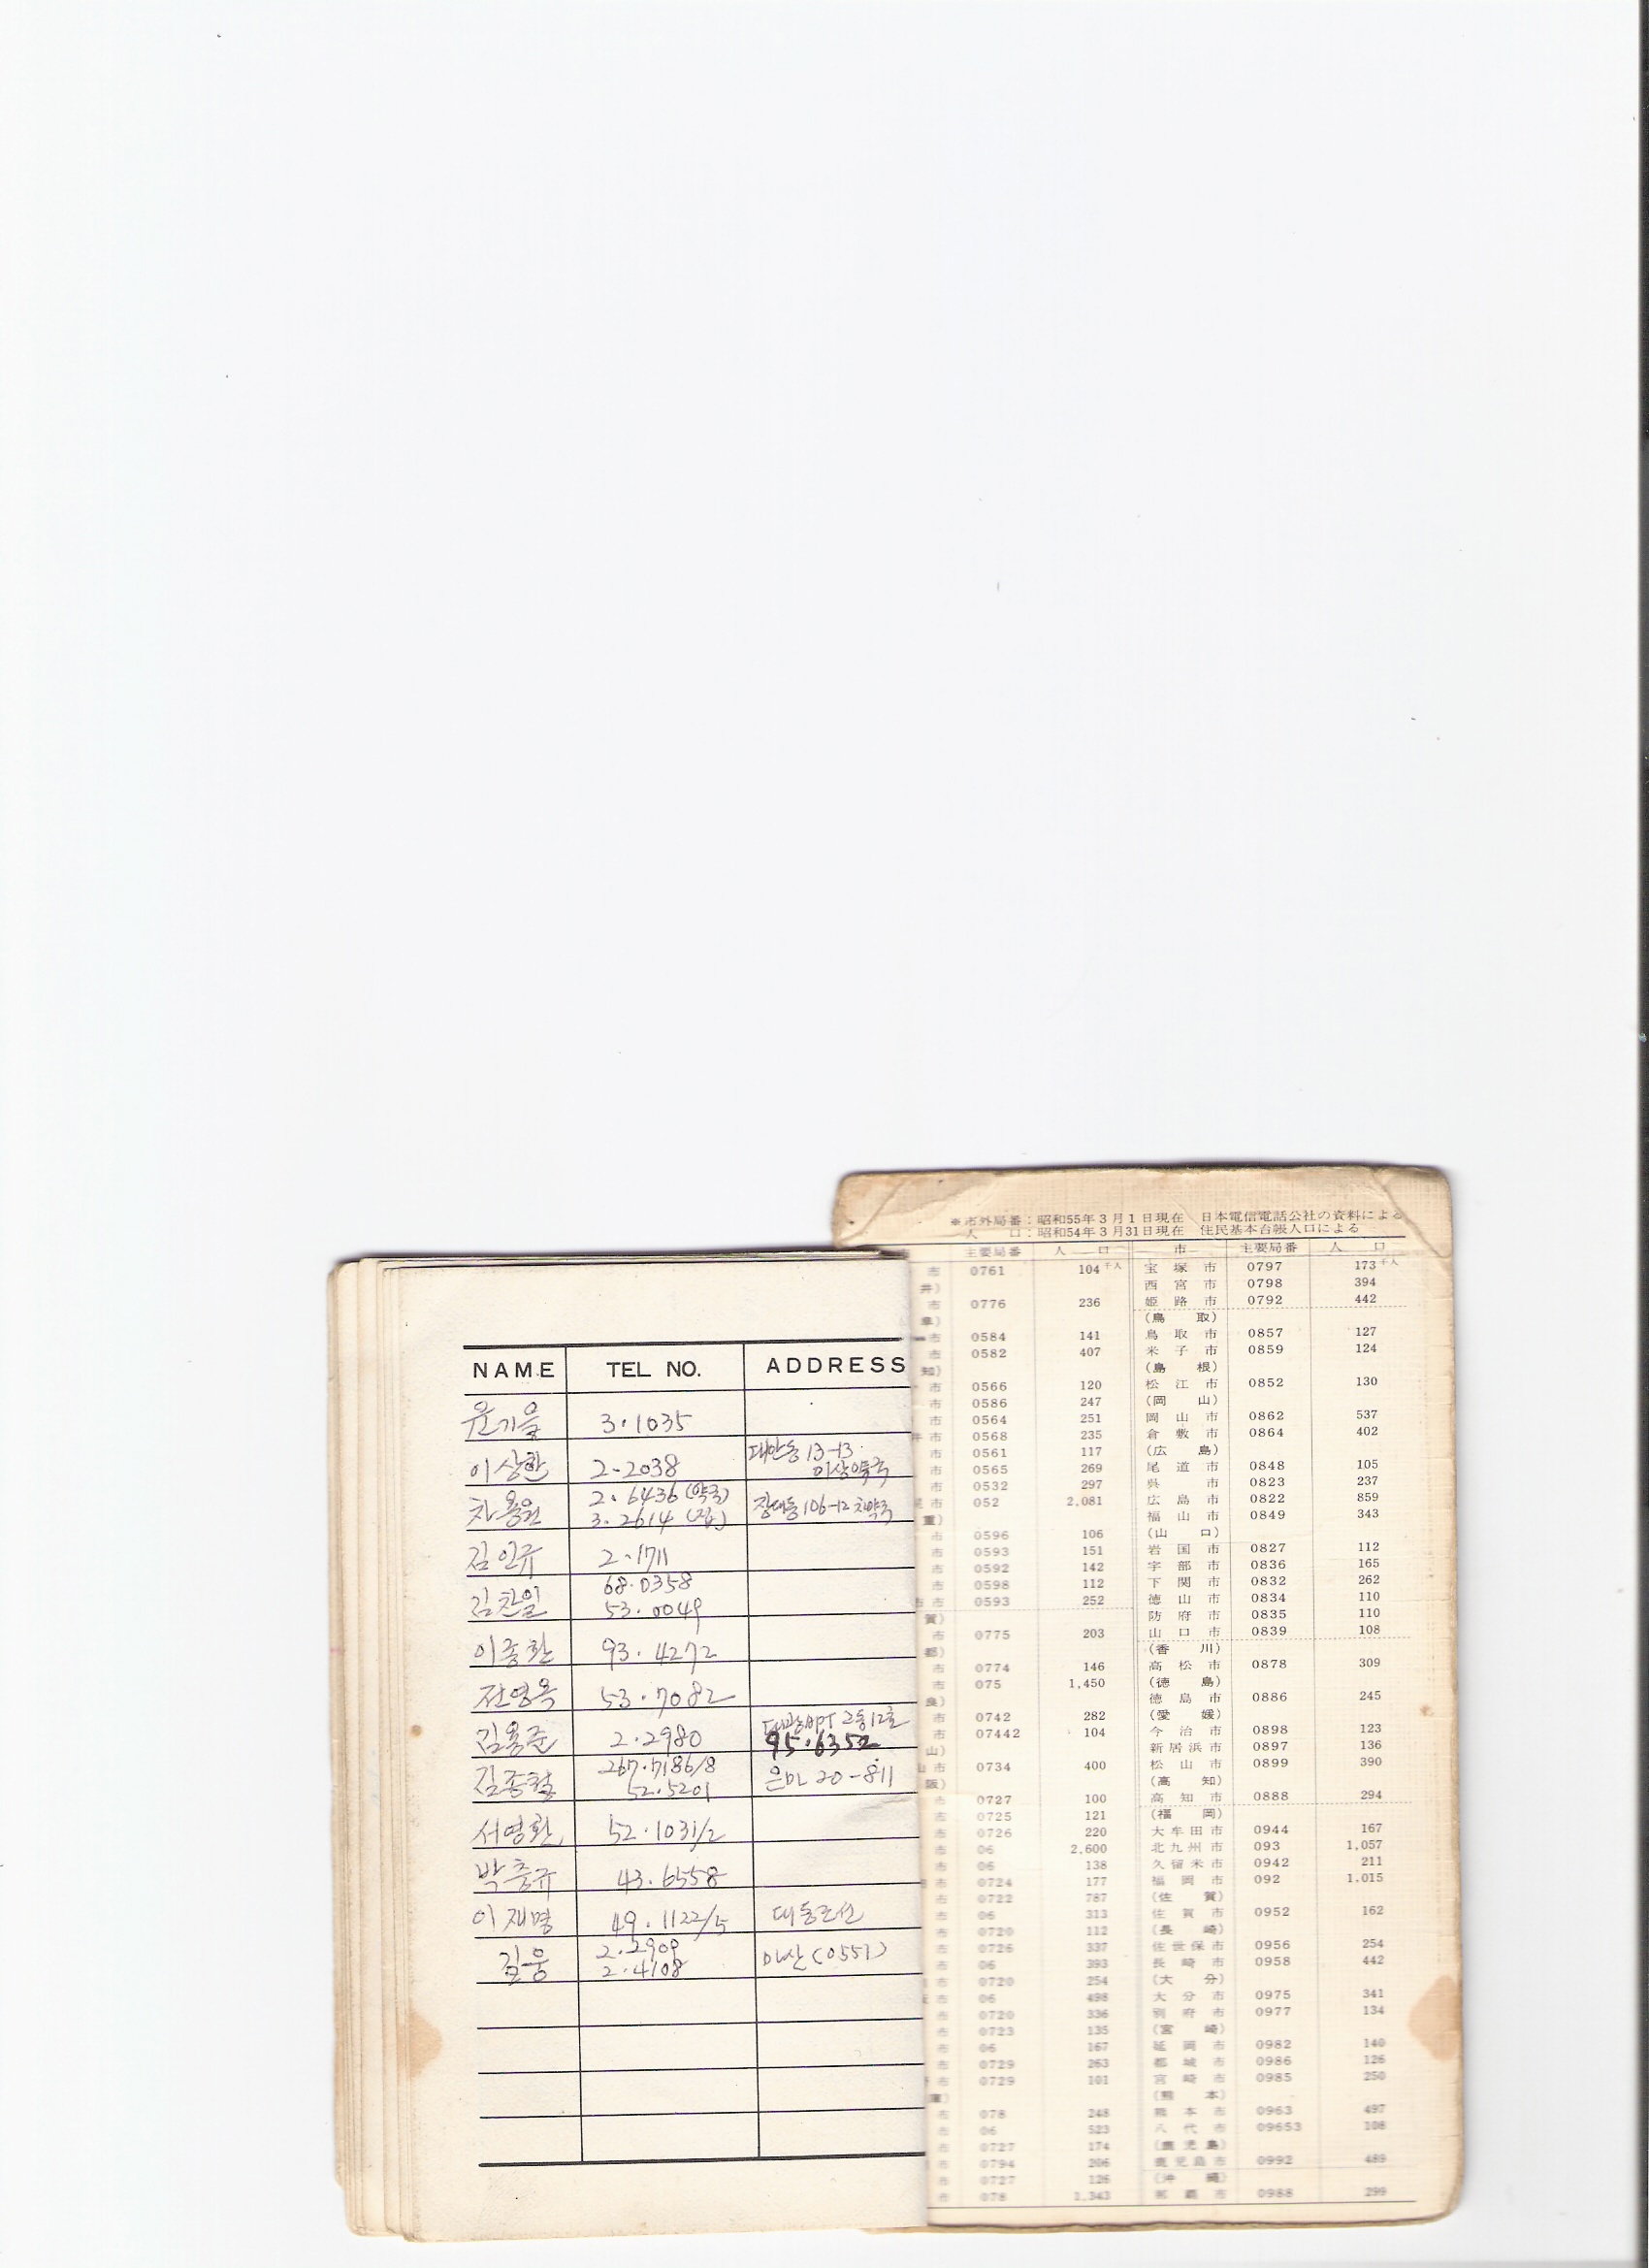 NAME TEL NO. ADDRESS
윤기을 3.1035
이상한 2-2038 대안동 13-13
이상약국
차용원 2.6436 (약국)
3.2614 (집) 장대동 106-12 차약국
김인규 2.1711
김찬일 68.0358
53.0049
이종환 93.4272
전영옥 53.7082
김용준 2.2980 95.6352
김종철 267.7186/8
52.5201 은마 20-811
서영환 52.1031/2
박충규 43.6558
이재명 49.1122/5 대동조선
김웅 2.2909
2.4108 마산(0551)
※市外局番:昭和55年3月1日現在 日本電信電話公社の資料による
人口:昭和54年3月31日現在 住民基本台帳人口による
主要局番 人口 市 主要局番 人口
市 0761 104千人 宝塚市 0797 173千人
井) 西宮市 0798 394
市 0776 236 姫路市 0792 442
阜) (鳥取)
市 0584 141 鳥取市 0857 127
市 0582 407 米子市 0859 124
知) (島根)
市 0566 120 松江市 0852 130
市 0586 247 (岡山)
市 0564 251 岡山市 0862 537
井市 0568 235 倉敷市 0864 402
市 0561 117 (広島)
市 0565 269 尾道市 0848 105
市 0532 297 呉市 0823 237
市 052 2,081 広島市 0822 859
重) 福山市 0849 343
市 0596 106 (山口)
市 0593 151 岩国市 0827 112
市 0592 142 宇部市 0836 165
市 0598 112 下関市 0832 262
市市 0593 252 徳山市 0834 110
賀) 防府市 0835 110
市 0775 203 山口市 0839 108
都) (香川)
市 0774 146 高松市 0878 309
市 075 1,450 (徳島)
良) 徳島市 0886 245
市 0742 282 (愛媛)
市 07442 104 今治市 0898 123
山) 新居浜市 0897 136
市 0734 400 松山市 0899 390
阪) (高知)
市 0727 100 高知市 0888 294
市 0725 121 (福岡)
市 0726 220 大牟田市 0944 167
市 06 2,600 北九州市 093 1,057
市 06 138 久留米市 0942 211
市 0724 177 福岡市 092 1,015
市 0722 787 (佐賀)
市 06 313 佐賀市 0952 162
市 0720 112 (長崎)
市 0726 337 佐世保市 0956 254
市 06 393 長崎市 0958 442
市 0720 254 (大分)
市 06 498 大分市 0975 341
市 0720 336 別府市 0977 134
市 0723 135 (宮崎)
市 06 167 延岡市 0982 140
市 0729 263 都城市 0986 126
市 0729 101 宮崎市 0985 250
庫) (熊本)
市 078 248 熊本市 0963 497
市 06 523 八代市 09653 108
市 0727 174 (鹿児島)
市 0794 206 鹿児島市 0992 489
市 0727 126 (沖縄)
市 078 1,343 那覇市 0988 299